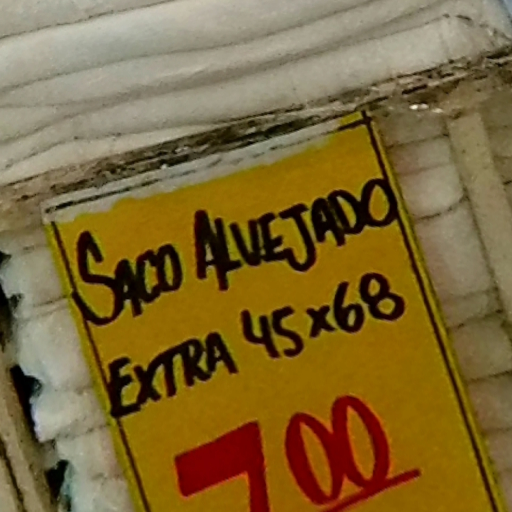 SACO ALVEJADO
EXTRA 45x68
7.00